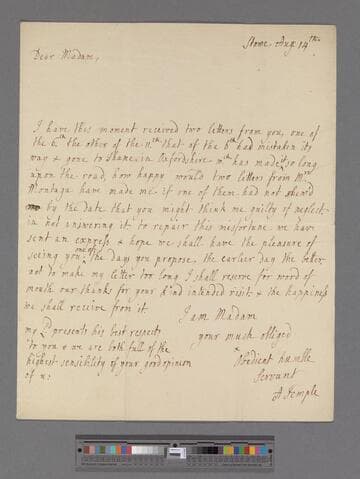 Stowe, Aug: 14th
Dear Madam,
I have this moment received two letters from you, one of
the 6th the other of the 11th that of the 6th had mistaken its
way & gone to Thame in Oxfordshire wch has made it so long
upon the road, how happy would two letters from Mrs
Montagu have made me if one of them had not shew'd
by the date that you might think me guilty of neglect
in not answering it to repair this misfortune we have
sent an express & hope we shall have the pleasure of
seeing you the day you propose, the earlier day the better
not to make my letter too long I shall reserve for word of
mouth our thanks for your kind intended visit & the happiness
we shall receive from it
I am Madam
my L presents his best respects
your much obliged
to you & we are both full of the
Obedient humble
highest sensibility of your good opinion
Servant
of us
A Temple